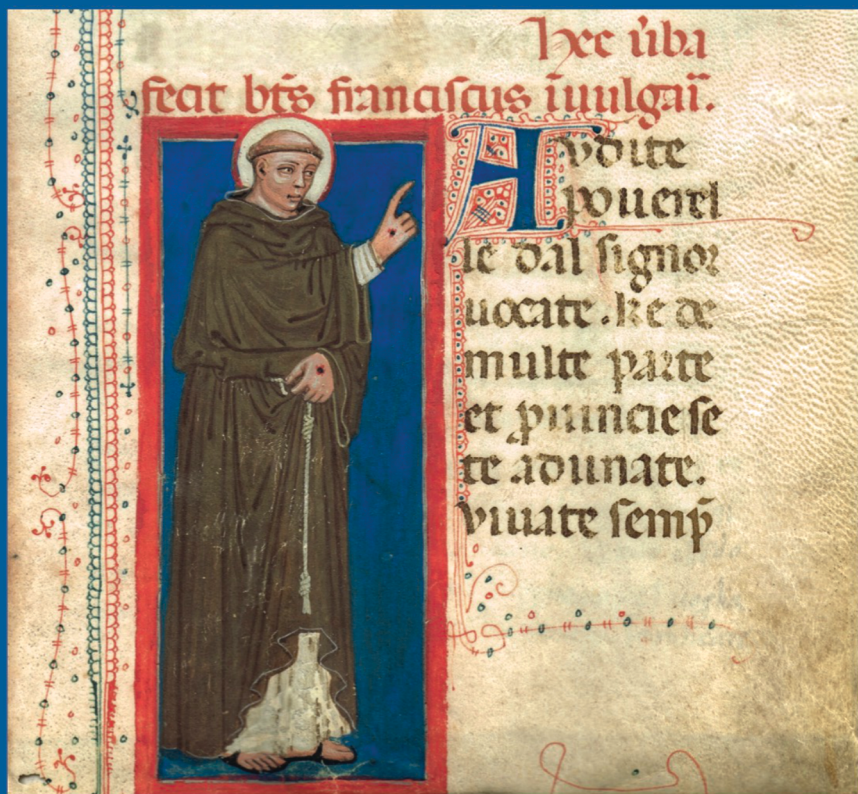 Hec ūba
fecit bt̄s franciscus ī uulgaī.
Audite
pouerel
le dal signor
uocate. ke de
multe parte
et ꝓuincie se
te adunate.
viuate semp̄